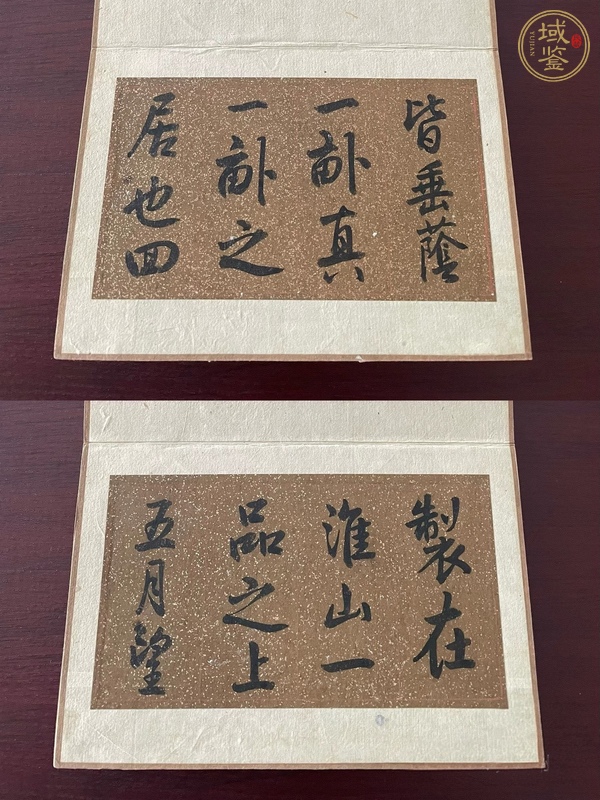 皆垂蔭
一畝真
一畝之
居也回
製在
淮山一
品之上
五月望
域鉴
YUJIAN